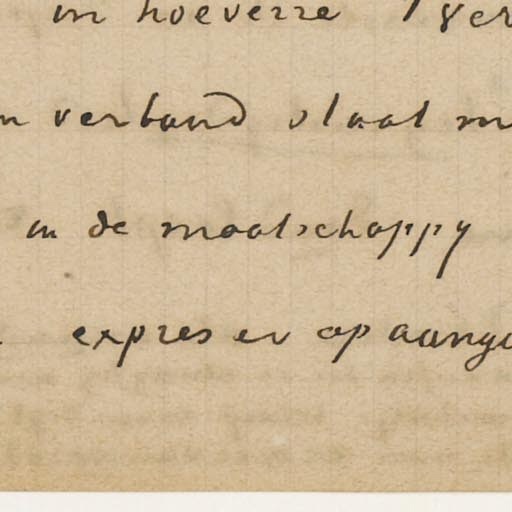 in hoeverre 't ver
n verband staat m
in de maatschappy
expres er op aange